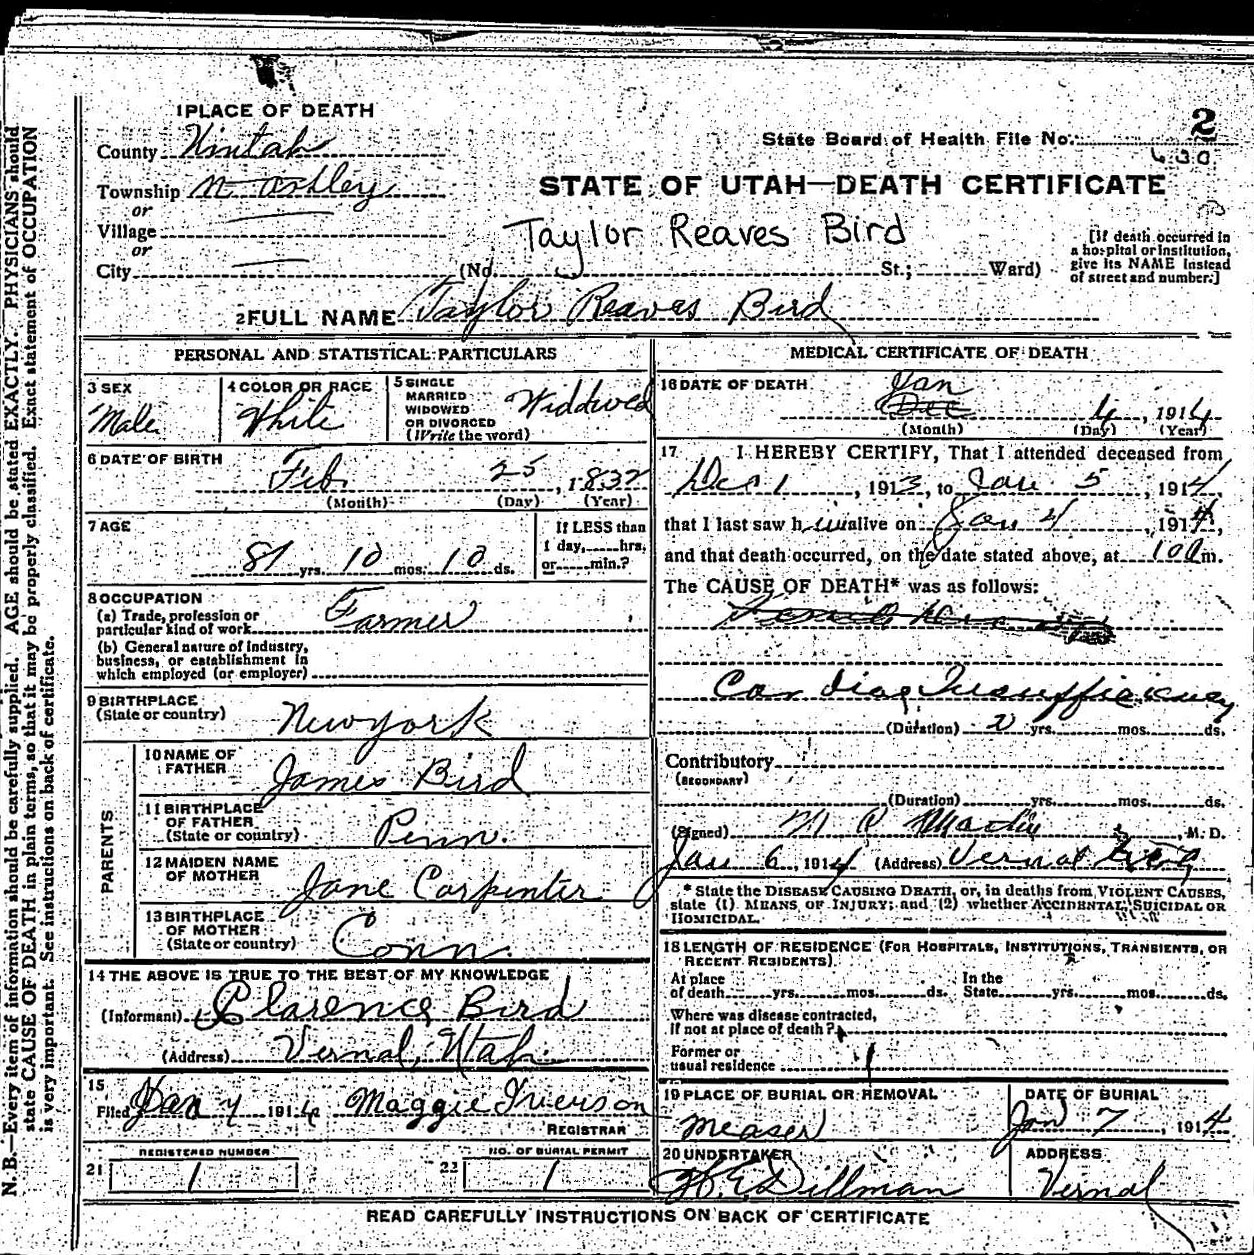 1 PLACE OF DEATH
County Uintah
Township N Ashley
or
Village
or
City
2
State Board of Health File No.
630
STATE OF UTAH—DEATH CERTIFICATE
Taylor Reaves Bird
(No. St.; Ward)
[If death occurred in
a hospital or institution,
give its NAME instead
of street and number.]
2 FULL NAME Taylor Reaves Bird
PERSONAL AND STATISTICAL PARTICULARS
3 SEX
Male
4 COLOR OR RACE
White
5 SINGLE
MARRIED
WIDOWED
OR DIVORCED
(Write the word)
Widdwed
6 DATE OF BIRTH
Feb. 25, 1832
(Month) (Day) (Year)
7 AGE
81 yrs. 10 mos. 10 ds.
If LESS than
1 day, hrs.
or min.?
8 OCCUPATION
(a) Trade, profession or
particular kind of work
Farmer
(b) General nature of industry,
business, or establishment in
which employed (or employer)
9 BIRTHPLACE
(State or country)
New york
PARENTS
10 NAME OF
FATHER
James Bird
11 BIRTHPLACE
OF FATHER
(State or country)
Penn.
12 MAIDEN NAME
OF MOTHER
Jane Carpinter
13 BIRTHPLACE
OF MOTHER
(State or country)
Conn.
14 THE ABOVE IS TRUE TO THE BEST OF MY KNOWLEDGE
(Informant) Clarence Bird
(Address) Vernal, Utah.
15
Filed Jan 7 1914 Maggie Iverson
REGISTRAR
21
REGISTERED NUMBER
1
22
NO. OF BURIAL PERMIT
1
MEDICAL CERTIFICATE OF DEATH
16 DATE OF DEATH
Jan
Dec 4, 1914
(Month) (Day) (Year)
17 I HEREBY CERTIFY, That I attended deceased from
Dec 1, 1913, to Jan 5, 1914,
that I last saw him alive on Jan 4, 1914,
and that death occurred, on the date stated above, at 100 m.
The CAUSE OF DEATH* was as follows:
Cardiac Insufficiency
(Duration) 2 yrs. mos. ds.
Contributory
(SECONDARY)
(Duration) yrs. mos. ds.
(Signed) M. D.
Jan 6, 1914 (Address) Vernal
* State the DISEASE CAUSING DEATH, or, in deaths from VIOLENT CAUSES,
state (1) MEANS OF INJURY; and (2) whether ACCIDENTAL, SUICIDAL OR
HOMICIDAL.
18 LENGTH OF RESIDENCE (FOR HOSPITALS, INSTITUTIONS, TRANSIENTS, OR
RECENT RESIDENTS).
At place
of death yrs. mos. ds.
In the
State yrs. mos. ds.
Where was disease contracted,
if not at place of death?
Former or
usual residence
19 PLACE OF BURIAL OR REMOVAL
Measer
DATE OF BURIAL
Jan 7, 1914
20 UNDERTAKER
H. E. Dillman
ADDRESS
Vernal
READ CAREFULLY INSTRUCTIONS ON BACK OF CERTIFICATE
N. B.—Every item of information should be carefully supplied. AGE should be stated EXACTLY. PHYSICIANS should
state CAUSE OF DEATH in plain terms, so that it may be properly classified. Exact statement of OCCUPATION
is very important. See instructions on back of certificate.